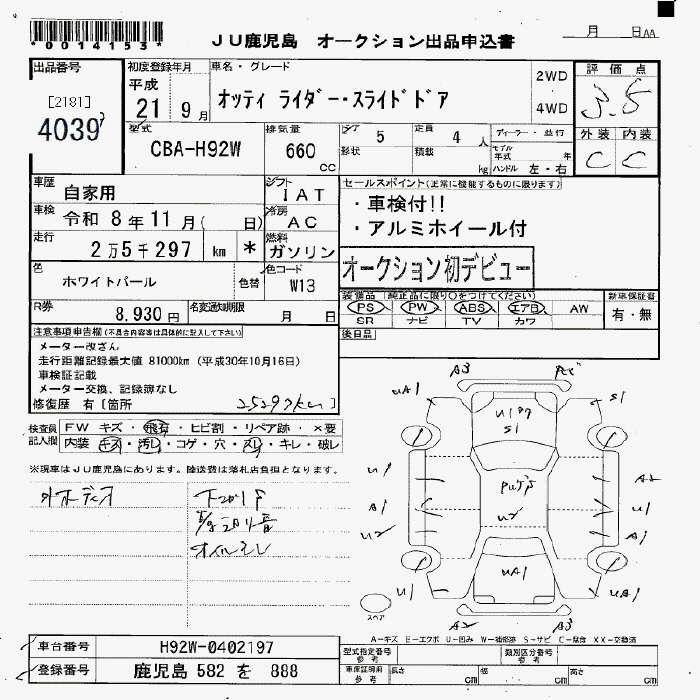 *0014153*
JU鹿児島 オークション出品申込書
月 日AA
出品番号
[2181]
4039
初度登録年月
平成
21 9月
車名・グレード
オッティ ライダー・スライドドア
2WD
4WD
評価点
3.5
外装 内装
C C
型式
CBA-H92W
排気量
660
CC
ドア 5
形状
定員 4 人
積載 kg
ディーラー・並行
モデル年式 年
ハンドル 左・右
車歴 自家用
シフト IAT
車検 令和 8年11月( 日)
冷房 AC
走行 2万5千297 km *
燃料 ガソリン
色 ホワイトパール 色替
色コード W13
R券 8,930円
名変通知期限 月 日
セールスポイント(正常に機能するものに限ります)
・車検付!!
・アルミホイール付
オークション初デビュー
装備品 (純正品に限り○をつけてください)
PS PW ABS エアB AW
SR ナビ TV カワ
新車保証書
有・無
後日品
注意事項申告欄(不具合内容等は具体的に記入して下さい)
メーター改ざん
走行距離記録最大値 81000km (平成30年10月16日)
車検証記載
メーター交換、記録簿なし
修復歴 有[箇所 25297km]
検査員記入欄
FW キズ・飛石・ヒビ割・リペア跡・×要
内装 キズ・汚レ・コゲ・穴・スレ・キレ・破レ
※現車はJU鹿児島にあります。陸送費は落札店負担となります。
外オーディオ
下回りサ
オイルモレ
A3
UA1 S1
S1
U1 A2
A1 U1
U2 U2 A1
UA1
U1 A1
A2 A3
スペア
A-キズ E-エクボ U-凹み W-補修跡 S-サビ C-腐食 XX-交換済
車台番号 H92W-0402197
登録番号 鹿児島 582 を 888
型式指定番号 参考
類別区分番号 参考
車庫証明用 参考
長さ cm 幅 cm 高さ cm